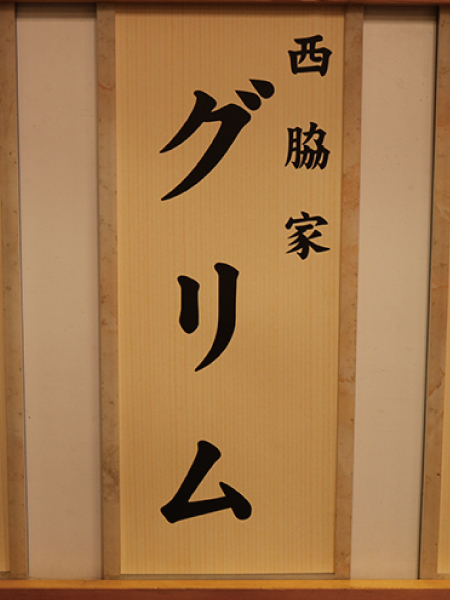 西脇家
グリム